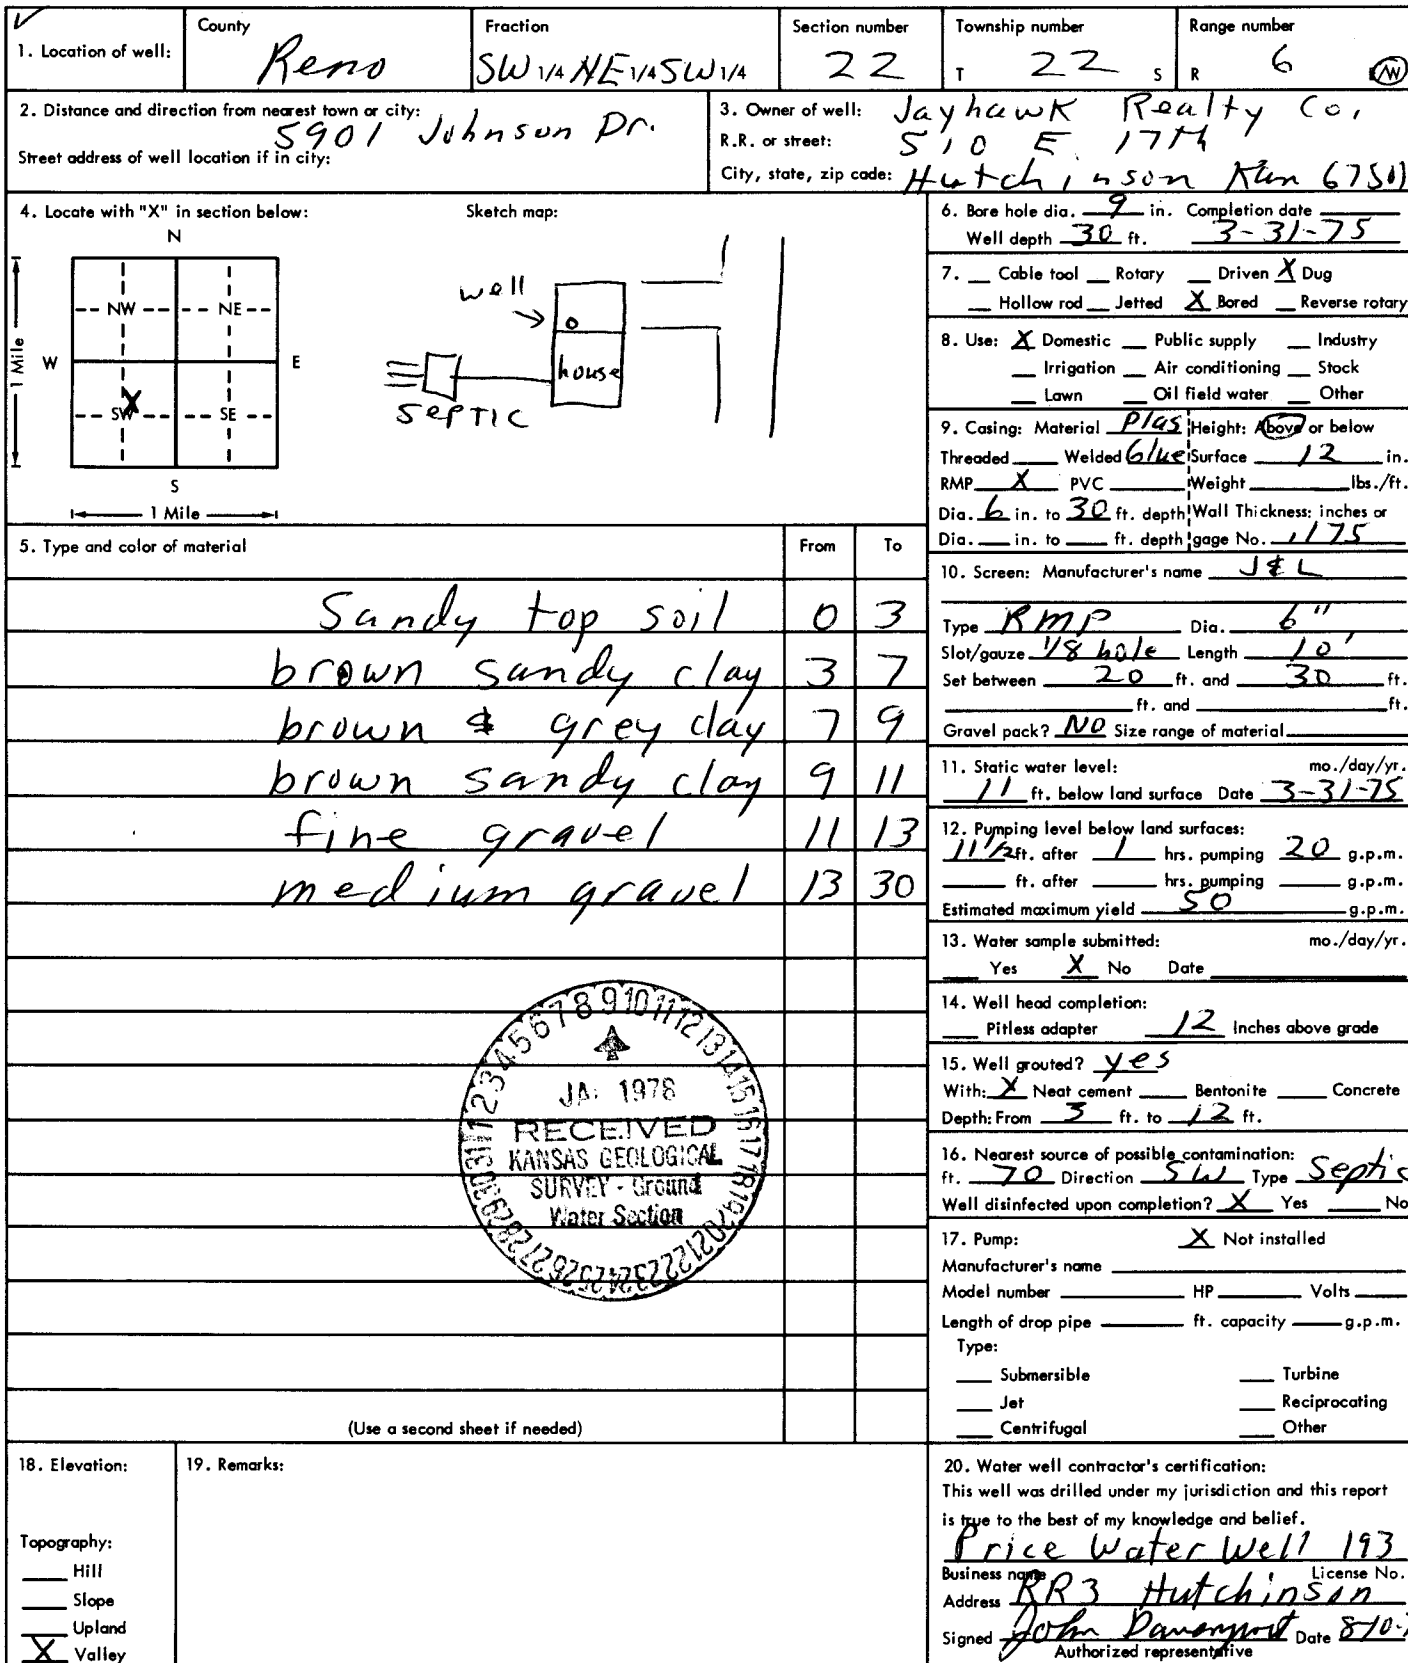 County Fraction Section number Township number Range number
1. Location of well: Reno SW 1/4 NE 1/4 SW 1/4 22 T 22 S R 6 W
2. Distance and direction from nearest town or city: 5901 Johnson Dr.
Street address of well location if in city:
3. Owner of well: Jayhawk Realty Co.
R.R. or street: 510 E. 17th
City, state, zip code: Hutchinson Kan 67501
4. Locate with "X" in section below:
N
NW NE
W E
SW X SE
S
1 Mile
1 Mile
Sketch map:
well
house
SEPTIC
5. Type and color of material From To
Sandy top soil 0 3
brown sandy clay 3 7
brown & grey clay 7 9
brown sandy clay 9 11
fine gravel 11 13
medium gravel 13 30
1 2 3 4 5 6 7 8 9 10 11 12 13 14 15 16 17 18 19 20 21 22 23 24 25 26 27 28 29 30 31
1978
RECEIVED
KANSAS GEOLOGICAL
SURVEY - Ground
Water Section
(Use a second sheet if needed)
6. Bore hole dia. 9 in. Completion date
Well depth 30 ft. 3-31-75
7. Cable tool Rotary Driven X Dug
Hollow rod Jetted X Bored Reverse rotary
8. Use: X Domestic Public supply Industry
Irrigation Air conditioning Stock
Lawn Oil field water Other
9. Casing: Material Plas Height: Above or below
Threaded Welded Glue Surface 12 in.
RMP X PVC Weight lbs./ft.
Dia. 6 in. to 30 ft. depth Wall Thickness: inches or
Dia. in. to ft. depth gage No. .175
10. Screen: Manufacturer's name J & L
Type RMP Dia. 6"
Slot/gauze 1/8 hole Length 10'
Set between 20 ft. and 30 ft.
ft. and ft.
Gravel pack? NO Size range of material
11. Static water level: mo./day/yr.
11 ft. below land surface Date 3-31-75
12. Pumping level below land surfaces:
11 1/2 ft. after 1 hrs. pumping 20 g.p.m.
ft. after hrs. pumping g.p.m.
Estimated maximum yield 50 g.p.m.
13. Water sample submitted: mo./day/yr.
Yes X No Date
14. Well head completion:
Pitless adapter 12 Inches above grade
15. Well grouted? yes
With: X Neat cement Bentonite Concrete
Depth: From ft. to 12 ft.
16. Nearest source of possible contamination:
ft. 70 Direction SW Type Septic
Well disinfected upon completion? X Yes No
17. Pump: X Not installed
Manufacturer's name
Model number HP Volts
Length of drop pipe ft. capacity g.p.m.
Type:
Submersible Turbine
Jet Reciprocating
Centrifugal Other
18. Elevation:
Topography:
Hill
Slope
Upland
X Valley
19. Remarks:
20. Water well contractor's certification:
This well was drilled under my jurisdiction and this report
is true to the best of my knowledge and belief.
Price Water Well 193
Business name License No.
Address RR3 Hutchinson
Signed John Davenport Date
Authorized representative